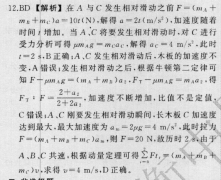 12.BD 【解析】在 A 与 C 发生相对滑动之前 F=(mA+
mB+mC)a=10t(N),解得 a=2t(m/s²),加速度随着
时间 t 增加。当 A、C 将要发生相对滑动时,对 C 进行
受力分析可得 μmAg=mCaC,解得 aC=4 m/s²,此时
t=2 s,B正确;A、C 发生相对滑动后,木板的加速度不
变,A错误;发生相对滑动之后,根据牛顿第二定律可
知 F−μmAg=(mA+mB)a2,FT−μmAg=mAa2,得
FT/F=(2+a2)/(2+2a2),加速度不断增加,比值不是定值,
C错误;A、C 刚要发生相对滑动瞬间,长木板 C 加速度
达到最大,最大加速度为 aC=2μg=4 m/s²,此时拉力
F=(mA+mB+mC)aC,则 F=20 N,故历时 2 s,由于
A、B、C 共速,根据动量定理可得 ΣFt=(mA+mB+
mC)v,求得 v=4 m/s,D正确。